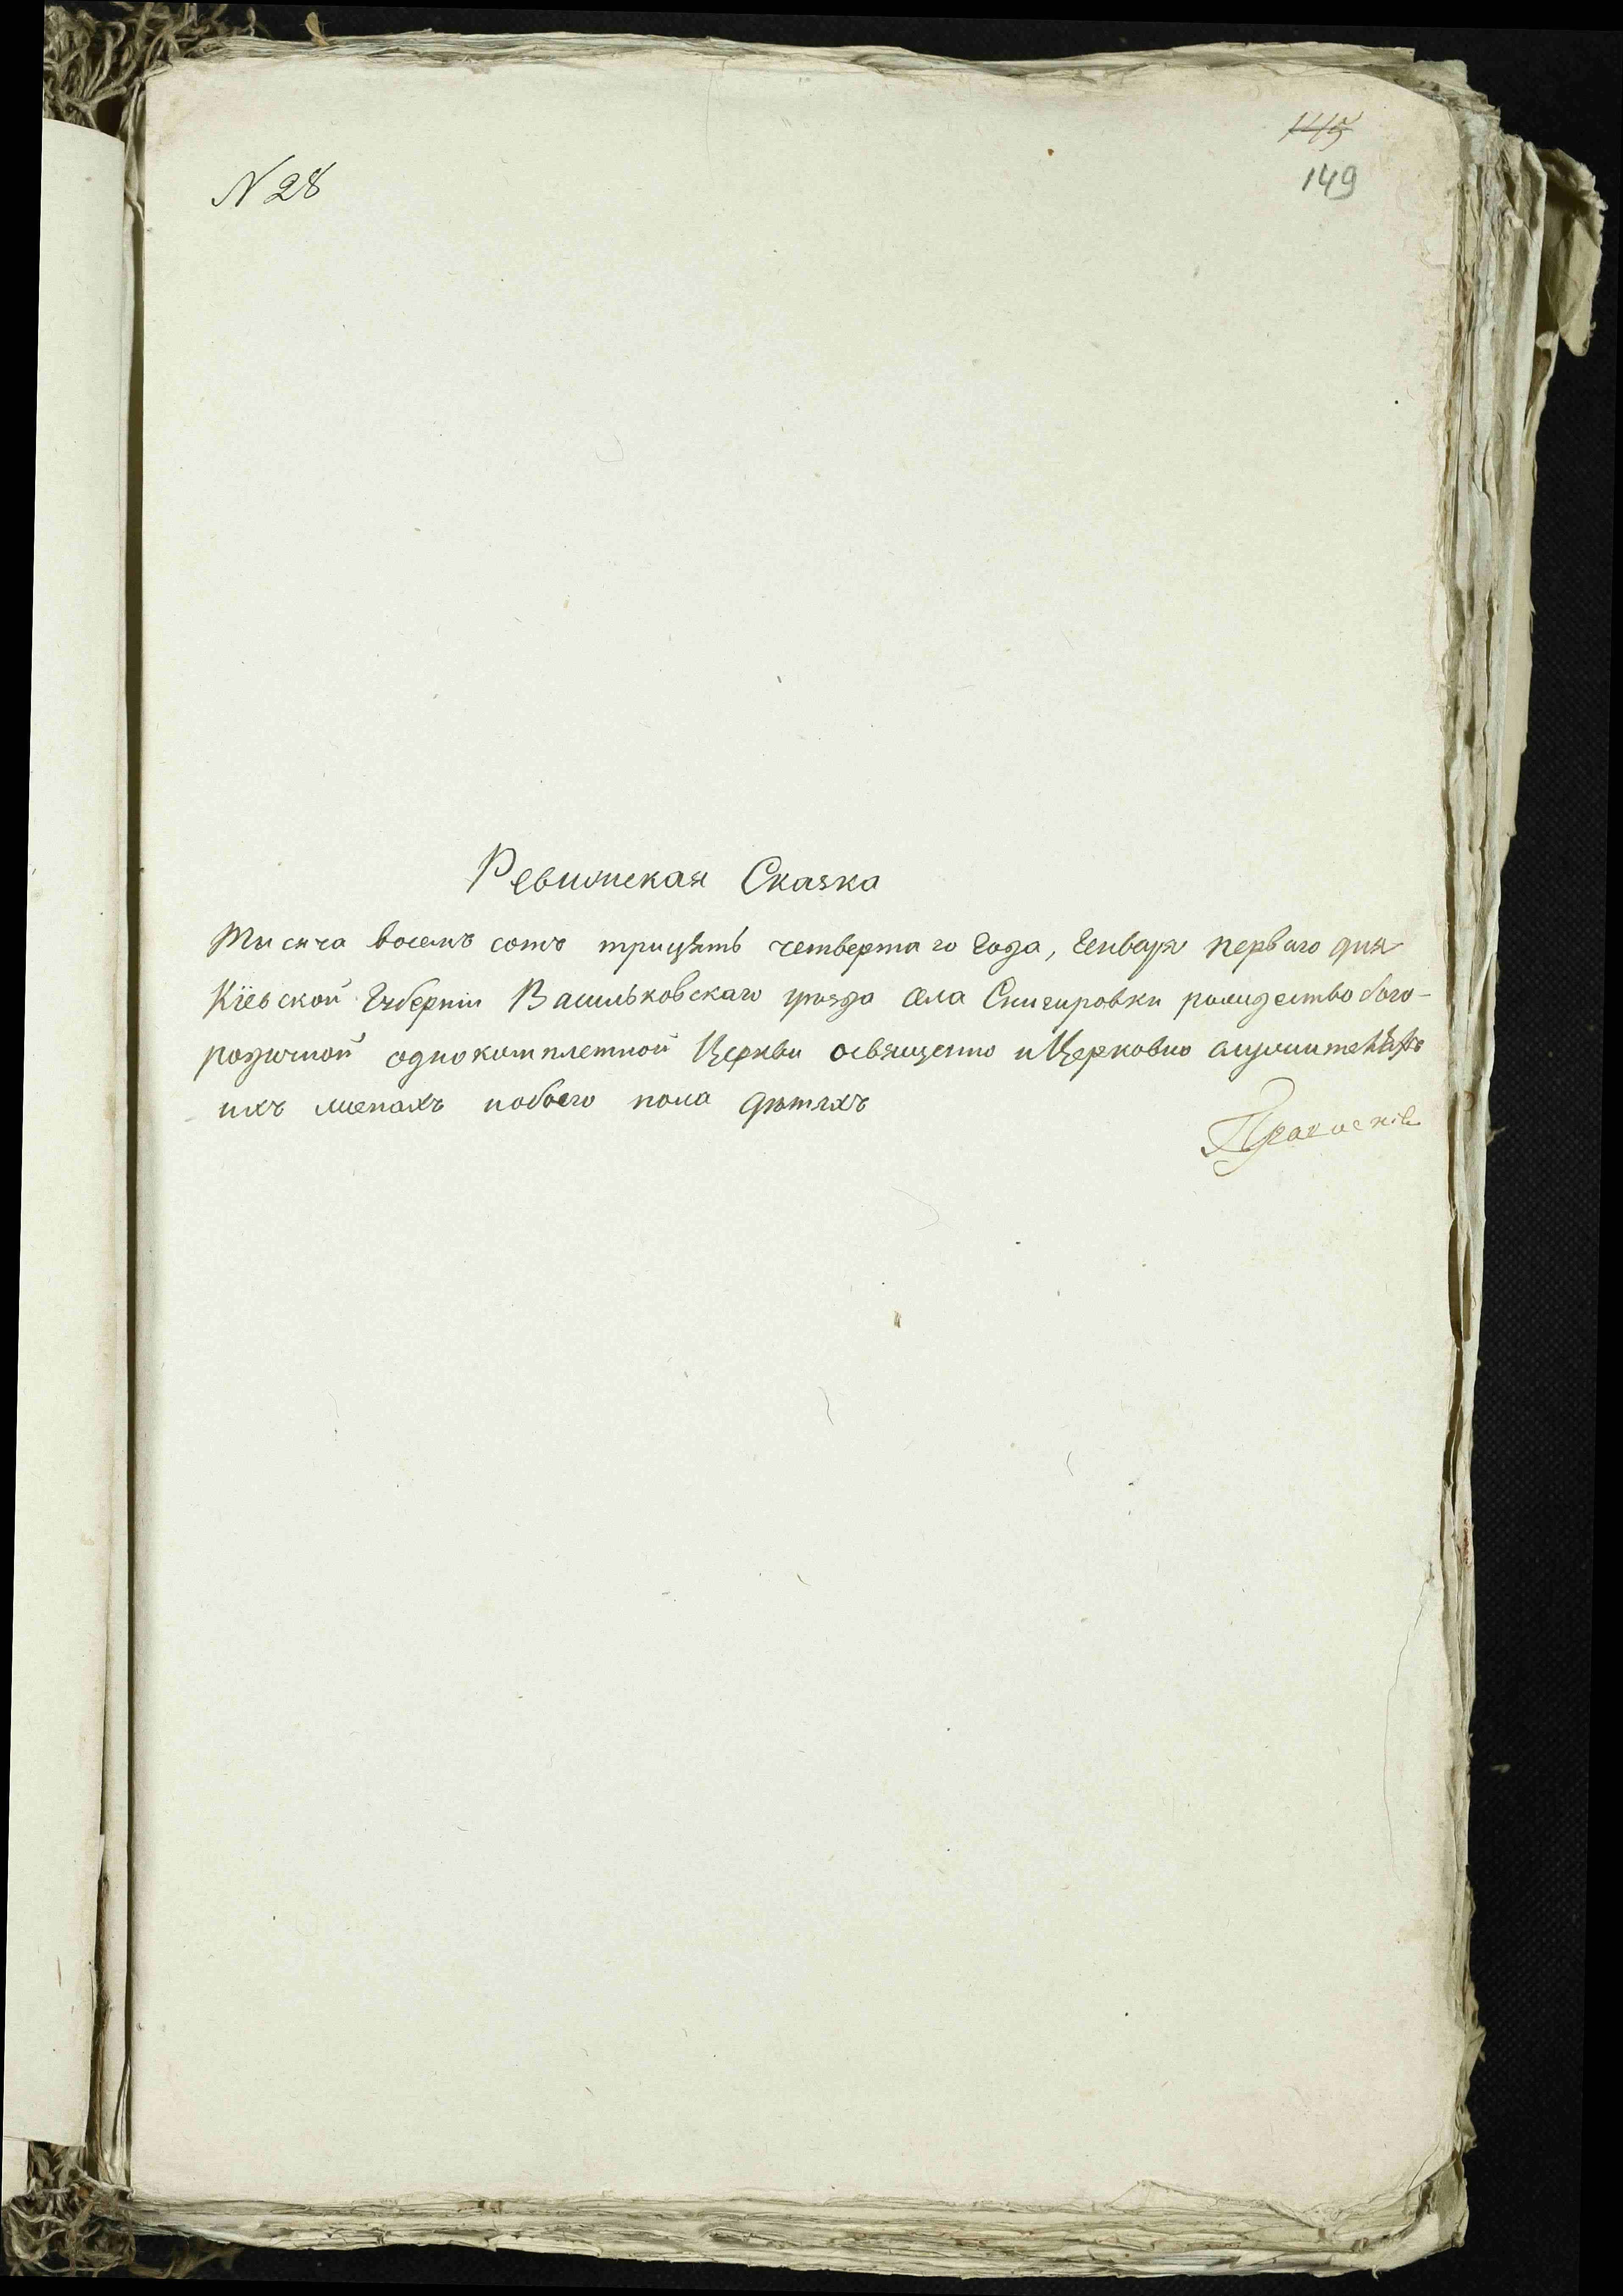 N 28
145
149
Ревижская Сказка
Тисяча восемъ сотъ трицять четвертаго Года, Генваря первого дня
Кїевской Губернїи Васильковскаго уѣзда села Снигировки рождество бого-
родичной однокомплетной Церкви освященно и Церковно служителяхъ
ихъ женахъ и обоего пола дѣтяхъ